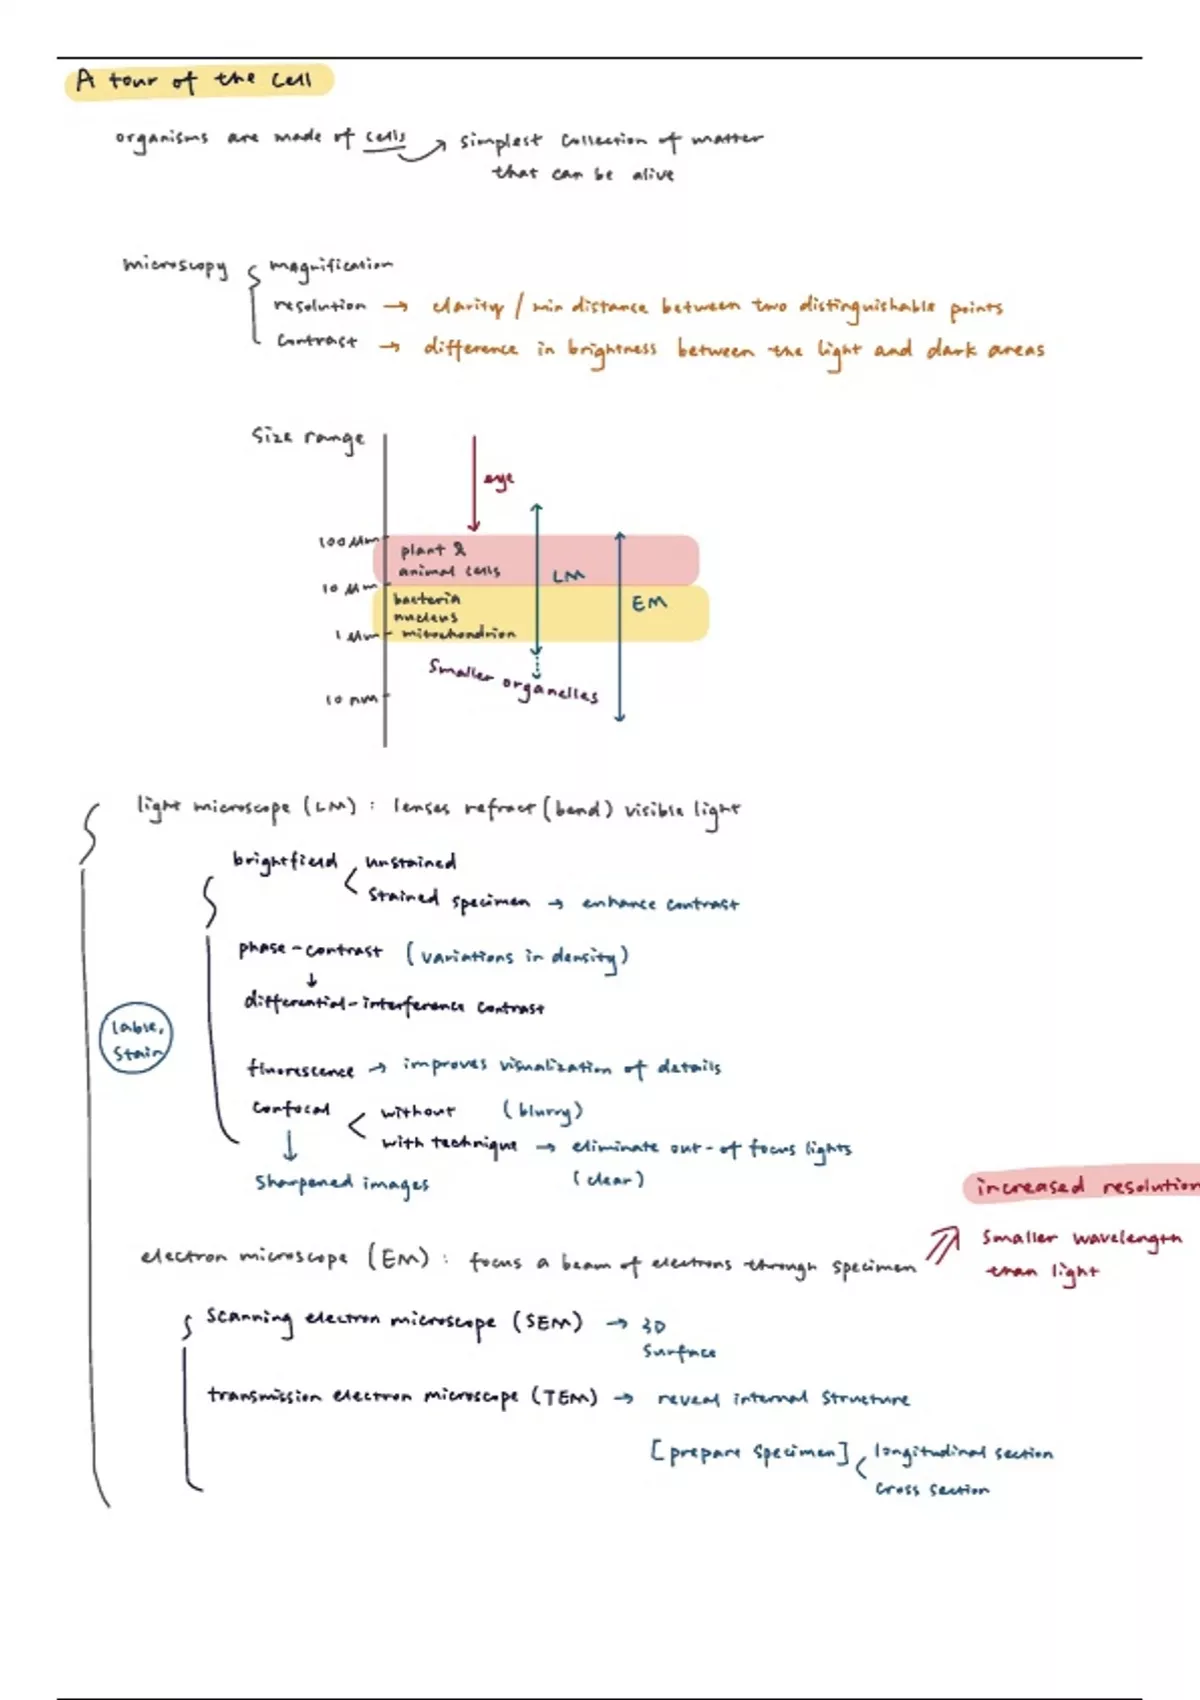 A tour of the cell
organisms are made of cells → simplest collection of matter
that can be alive
microscopy
magnification
resolution → clarity / min distance between two distinguishable points
contrast → difference in brightness between the light and dark areas
size range
eye
100 µm
plant &
animal cells
LM
10 µm
bacteria
EM
nucleus
1 µm
mitochondrion
smaller organelles
10 nm
light microscope (LM) : lenses refract (bend) visible light
brightfield
unstained
stained specimen → enhance contrast
phase-contrast (variations in density)
↓
differential-interference contrast
stain
fluorescence → improves visualization of details
confocal
without (blurry)
with technique → eliminate out-of focus lights
(clear)
↓
sharpened images
increased resolution
electron microscope (EM) : focus a beam of electrons through specimen
smaller wavelength
than light
scanning electron microscope (SEM) → 3D
surface
transmission electron microscope (TEM) → reveal internal structure
[prepare specimen]
longitudinal section
cross section